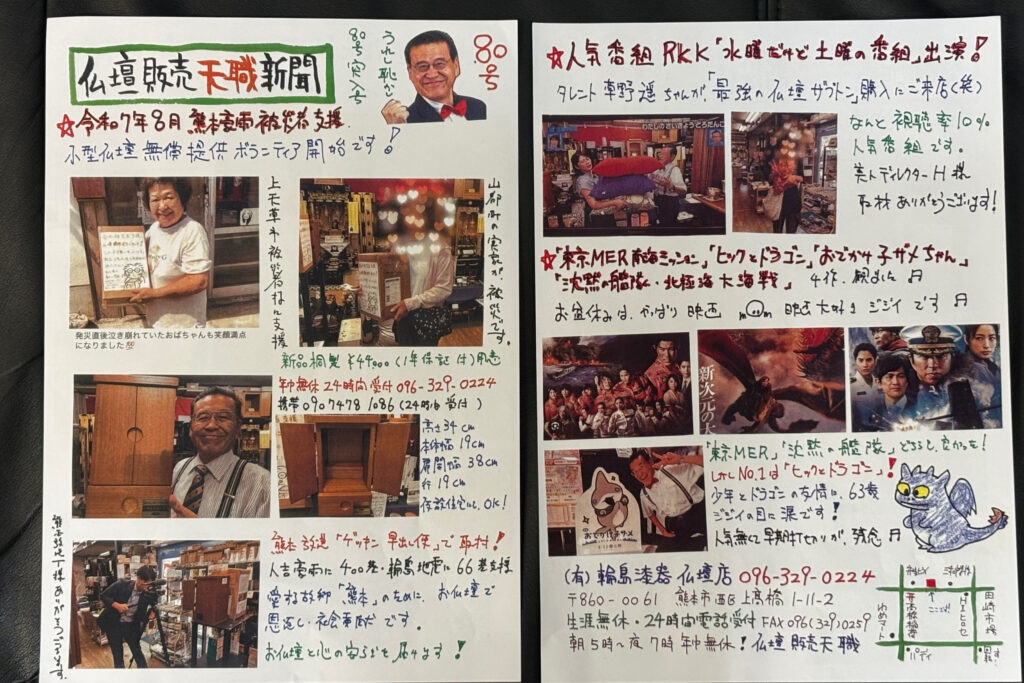 仏壇販売天職新聞
80号
うれし恥かし
80号突入号
☆令和7年8月 熊本豪雨被災者支援
小型仏壇無償提供ボランティア開始です!
上天草市被災者様に支援
山都町の実家が、被災です。
発災直後泣き崩れていたおばちゃんも笑顔満点
になりました💯
新品桐製 ¥44,000 (1年保証付)用意
年中無休24時間受付 096-329-0224
携帯 090 7478 1086 (24時間受付)
高さ34cm
本体幅19cm
扉開幅38cm
行19cm
仮設住宅にもOK!
熊本放送「ゲツキン早出し便」で取材!
人吉豪雨に400基・輪島地震に66基支援
愛する故郷「熊本」のために、お仏壇で
恩返し・社会貢献です。
お仏壇と心の安らぎを届けます!
ありがとうございます。
☆人気番組 RKK「水曜だけど土曜の番組」出演!
タレント草野遥ちゃんが、「最強の仏壇ザブトン」購入にご来店(笑)
わたしのさいきょうどろだんご
なんと視聴率10%
人気番組です。
美人ディレクターH様
取材ありがとうございます!
☆「東京MER 南海ミッション」「ヒックとドラゴン」「おでかけ子ザメちゃん」
「沈黙の艦隊・北極海大海戦」 4作、観ました♬
お盆休みは、やっぱり映画 映画大好きジジイです♬
新次元の
おでかけ子ザメ
「東京MER」「沈黙の艦隊」どちらも、良かった!
しかしNo.1は「ヒックとドラゴン」!
少年とドラゴンの友情に、63歳
ジジイの目に涙です!
人気無くて早期打ち切りが、残念♬
(有)輪島漆器仏壇店 096-329-0224
〒860-0061 熊本市西区上高橋1-11-2
生涯無休・24時間電話受付 FAX 096(329)0259
朝5時~夜7時 年中無休! 仏壇販売天職
ここだ!
高橋稲荷
田崎市場